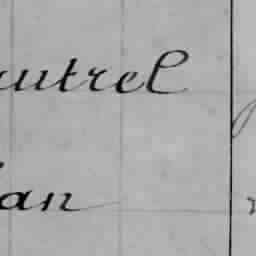 utrel
an